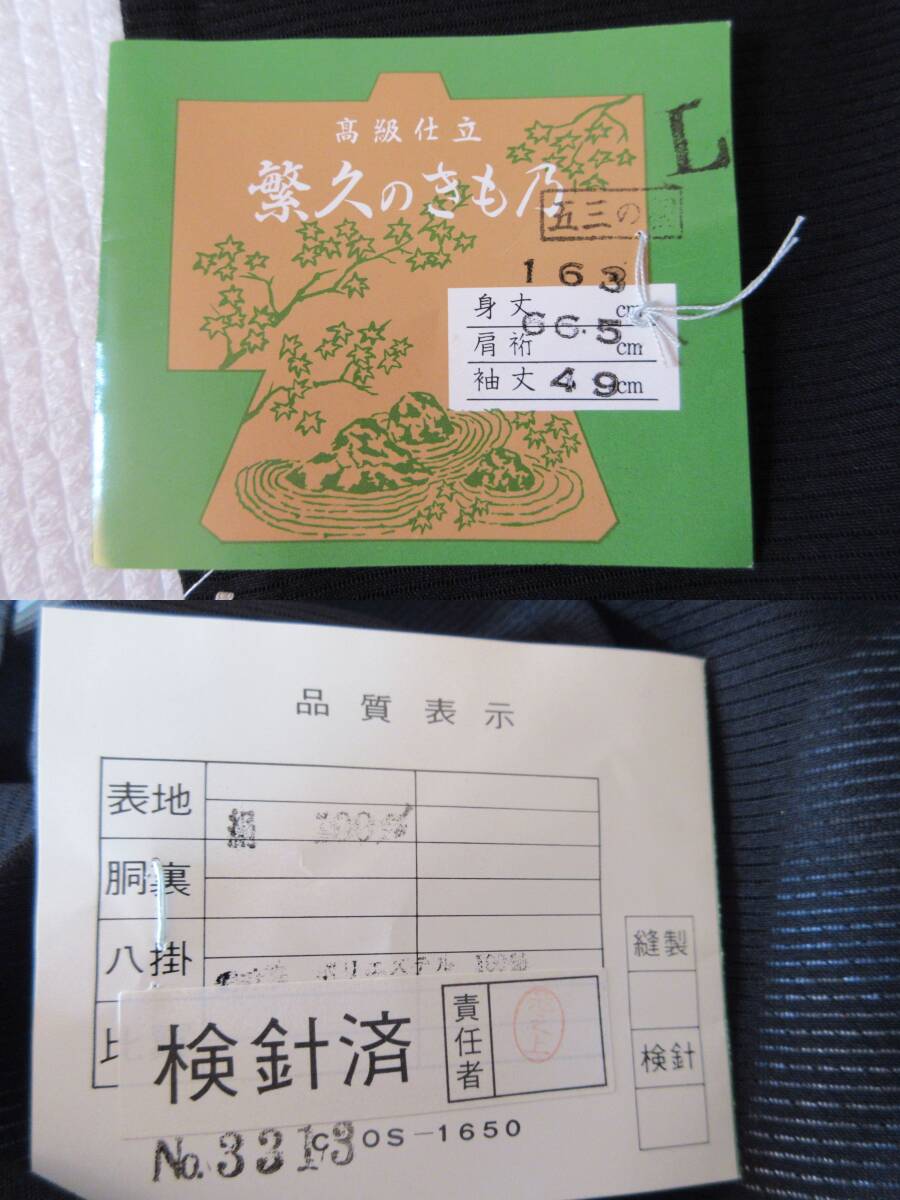 高級仕立
繁久のきも乃
L
五三の
163
身丈 cm
66.5
肩裄 cm
袖丈 49 cm
品質表示
表地
絹 100%
胴裏
八掛
ポリエステル 100%
比
縫製
検針
検針済
責任者
No. 3313
C OS-1650